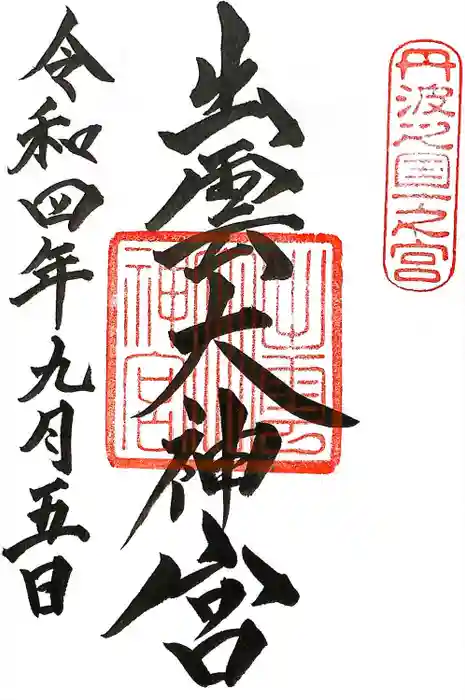 丹波之國一之宮
出雲大神宮
出雲大神宮
令和四年九月五日